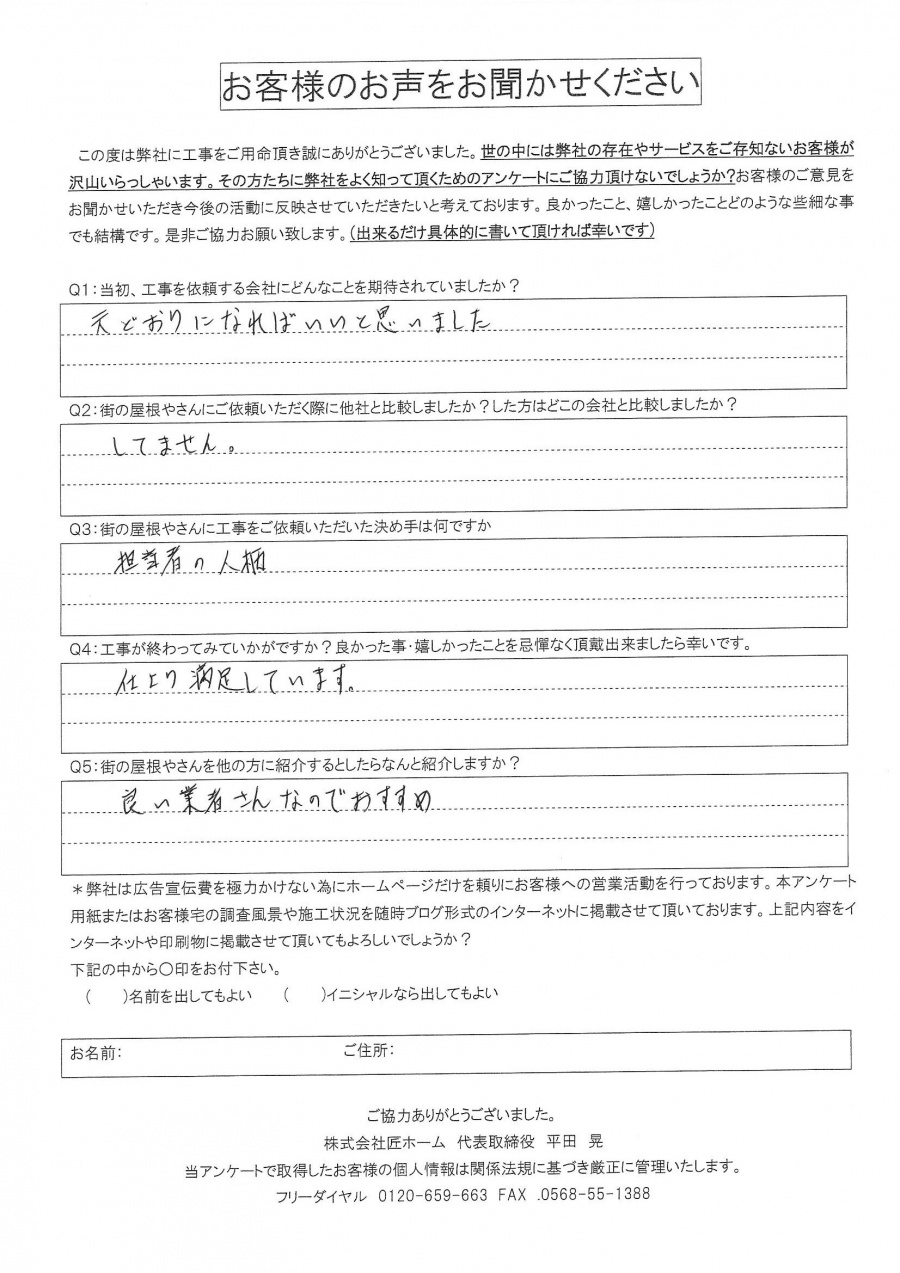 お客様のお声をお聞かせください
この度は弊社に工事をご用命頂き誠にありがとうございました。世の中には弊社の存在やサービスをご存知ないお客様が
沢山いらっしゃいます。その方たちに弊社をよく知って頂くためのアンケートにご協力頂けないでしょうか?お客様のご意見を
お聞かせいただき今後の活動に反映させていただきたいと考えております。良かったこと、嬉しかったことどのような些細な事
でも結構です。是非ご協力お願い致します。(出来るだけ具体的に書いて頂ければ幸いです)
Q1:当初、工事を依頼する会社にどんなことを期待されていましたか?
元どおりになればいいと思いました
Q2:街の屋根やさんにご依頼いただく際に他社と比較しましたか?した方はどこの会社と比較しましたか?
してません。
Q3:街の屋根やさんに工事をご依頼いただいた決め手は何ですか
担当者の人柄
Q4:工事が終わってみていかがですか?良かった事・嬉しかったことを忌憚なく頂戴出来ましたら幸いです。
仕上り満足しています。
Q5:街の屋根やさんを他の方に紹介するとしたらなんと紹介しますか?
良い業者さんなのでおすすめ
*弊社は広告宣伝費を極力かけない為にホームページだけを頼りにお客様への営業活動を行っております。本アンケート
用紙またはお客様宅の調査風景や施工状況を随時ブログ形式のインターネットに掲載させて頂いております。上記内容をイ
ンターネットや印刷物に掲載させて頂いてもよろしいでしょうか?
下記の中から〇印をお付下さい。
(　　)名前を出してもよい　(　　)イニシャルなら出してもよい
お名前:　ご住所:
ご協力ありがとうございました。
株式会社匠ホーム　代表取締役　平田　晃
当アンケートで取得したお客様の個人情報は関係法規に基づき厳正に管理いたします。
フリーダイヤル 0120-659-663 FAX .0568-55-1388